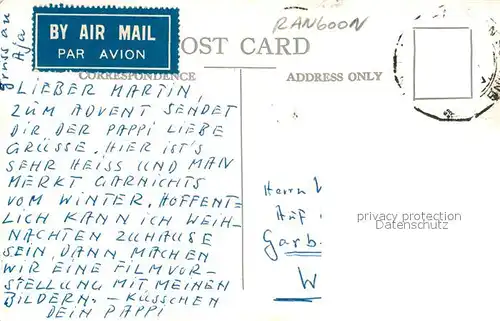 Gruss an
Aja
BY AIR MAIL
PAR AVION
RANGOON
POST CARD
CORRESPONDENCE
ADDRESS ONLY
LIEBER MARTIN,
ZUM ADVENT SENDET
DIR DER PAPPI LIEBE
GRÜSSE. HIER IST'S
SEHR HEISS UND MAN
MERKT GARNICHTS
VOM WINTER. HOFFENT-
LICH KANN ICH WEIH-
NACHTEN ZUHAUSE
SEIN, DANN MACHEN
WIR EINE FILMVOR-
STELLUNG MIT MEINEN
BILDERN. - KÜSSCHEN
DEIN PAPPI
Herrn
Auf
Garb.
W
privacy protection
Datenschutz